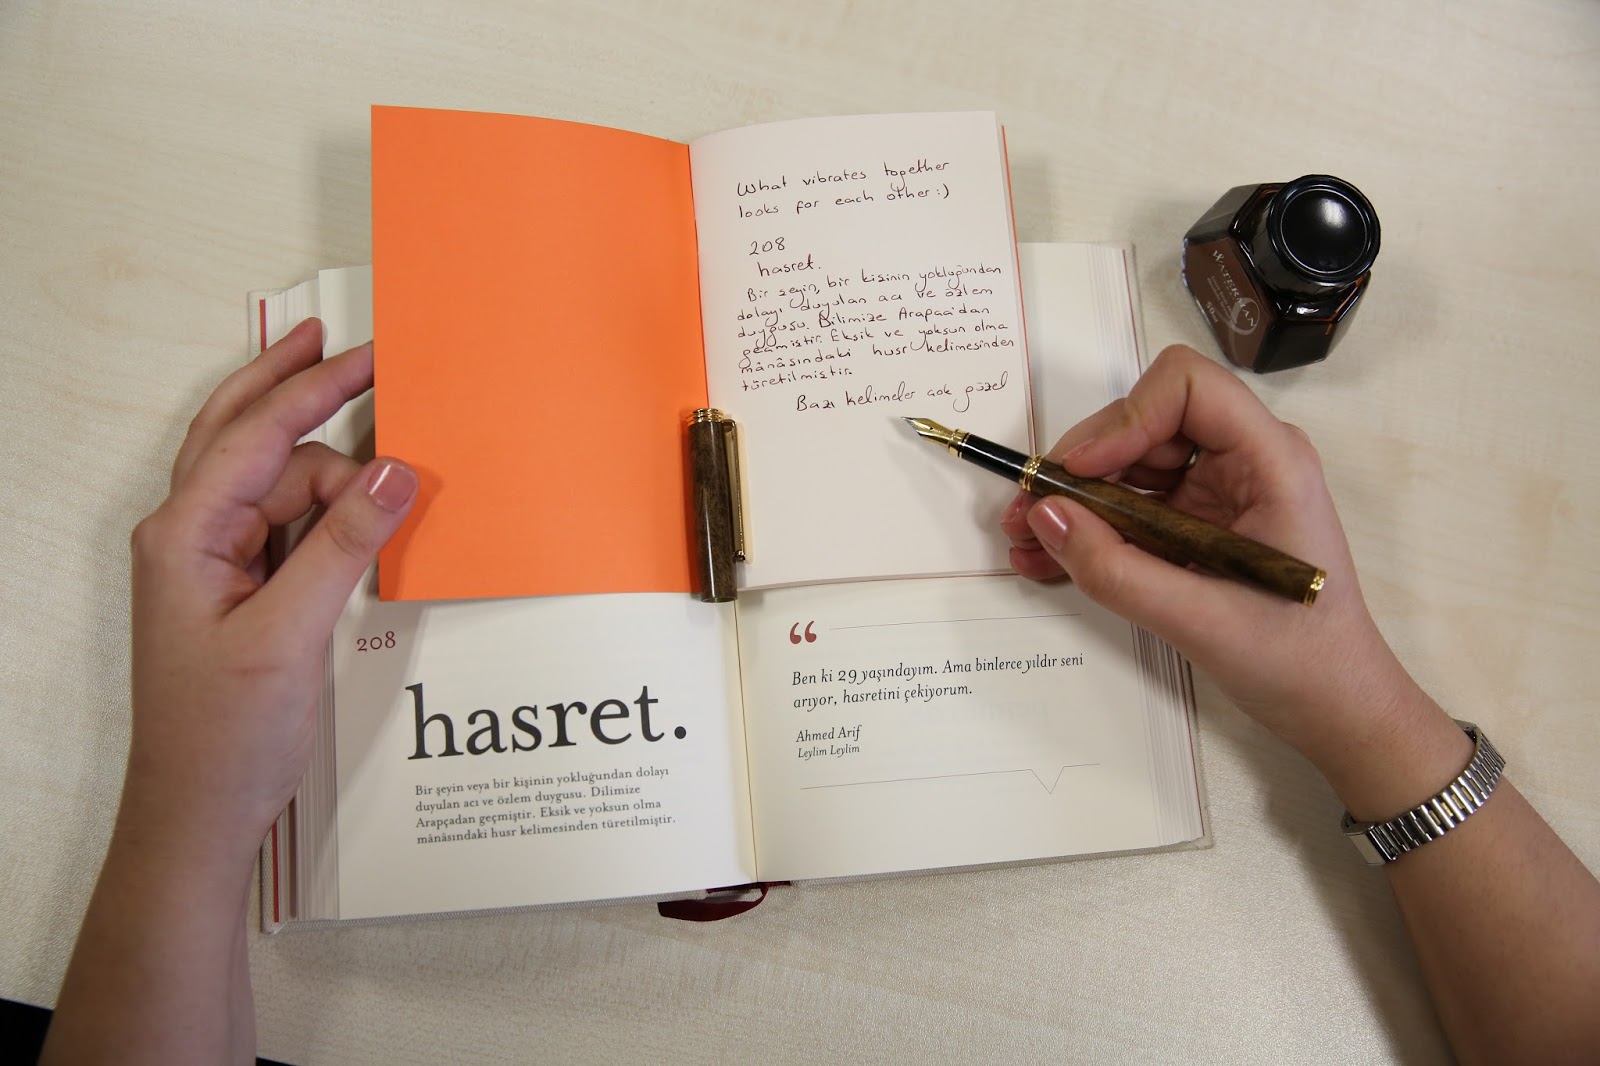 What vibrates together
looks for each other :)
208
hasret.
Bir şeyin, bir kişinin yokluğundan
dolayı duyulan acı ve özlem
duygusu. Dilimize Arapça'dan
geçmiştir. Eksik ve yoksun olma
mânâsındaki husr kelimesinden
türetilmiştir.
Bazı kelimeler çok güzel
WATERMAN
50 ml
208
hasret.
Bir şeyin veya bir kişinin yokluğundan dolayı
duyulan acı ve özlem duygusu. Dilimize
Arapçadan geçmiştir. Eksik ve yoksun olma
mânâsındaki husr kelimesinden türetilmiştir.
“
Ben ki 29 yaşındayım. Ama binlerce yıldır seni
arıyor, hasretini çekiyorum.
Ahmed Arif
Leylim Leylim